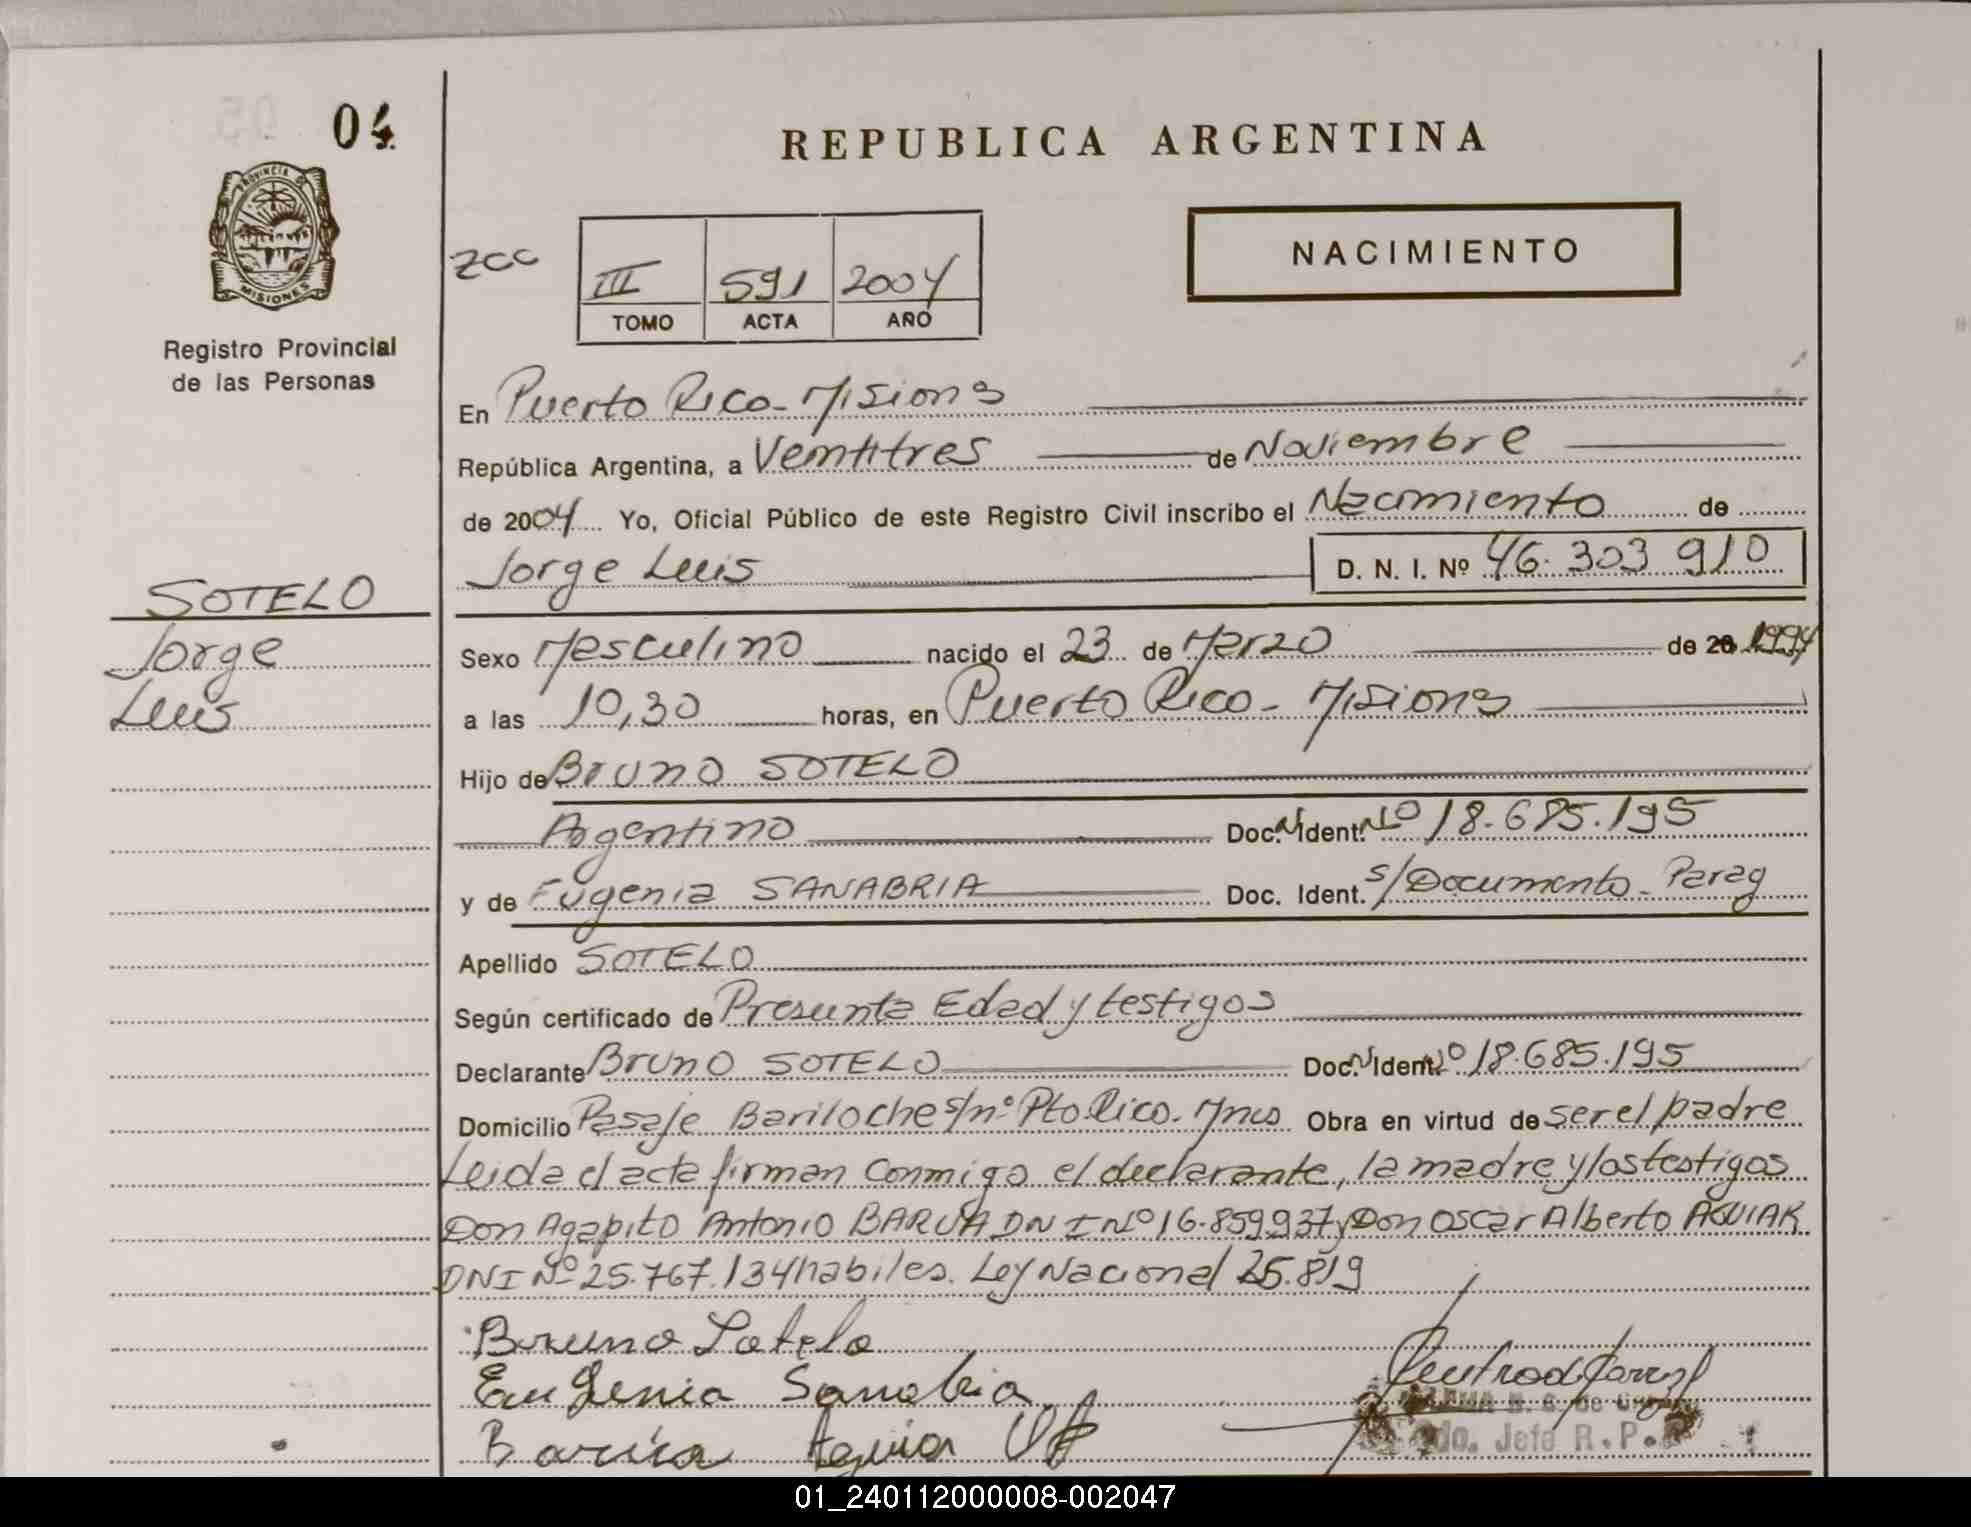 04
REPUBLICA ARGENTINA
PROVINCIA DE
MISIONES
Registro Provincial
de las Personas
zcc
III 591 2004
TOMO ACTA AÑO
NACIMIENTO
En Puerto Rico - Misiones
República Argentina, a Veintitres de Noviembre
de 2004 Yo, Oficial Público de este Registro Civil inscribo el Nacimiento de
Jorge Luis D. N. I. Nº 46.303 910
SOTELO
Jorge
Luis
Sexo Masculino nacido el 23 de Marzo de 20 1994
a las 10,30 horas, en Puerto Rico - Misiones
Hijo de Bruno SOTELO
Argentino Doc. Ident. Nº 18.685.195
y de Eugenia SANABRIA Doc. Ident. s/Documento - Parag
Apellido SOTELO
Según certificado de Presunta Edad y testigos
Declarante Bruno SOTELO Doc. Ident. Nº 18.685.195
Domicilio Pasaje Bariloche s/nº Pto Rico. Mnes Obra en virtud de ser el padre
Leida el acta firman conmigo el declarante, la madre y los testigos
Don Agapito Antonio BARUA DNI Nº 16.859937 y Don Oscar Alberto AGUIAR
DNI Nº 25.767.134 habiles. Ley Nacional 25.819
Bruno Sotelo
Eugenia Sanabria
Barua Aguiar
Jefe R.P.
01_240112000008-002047